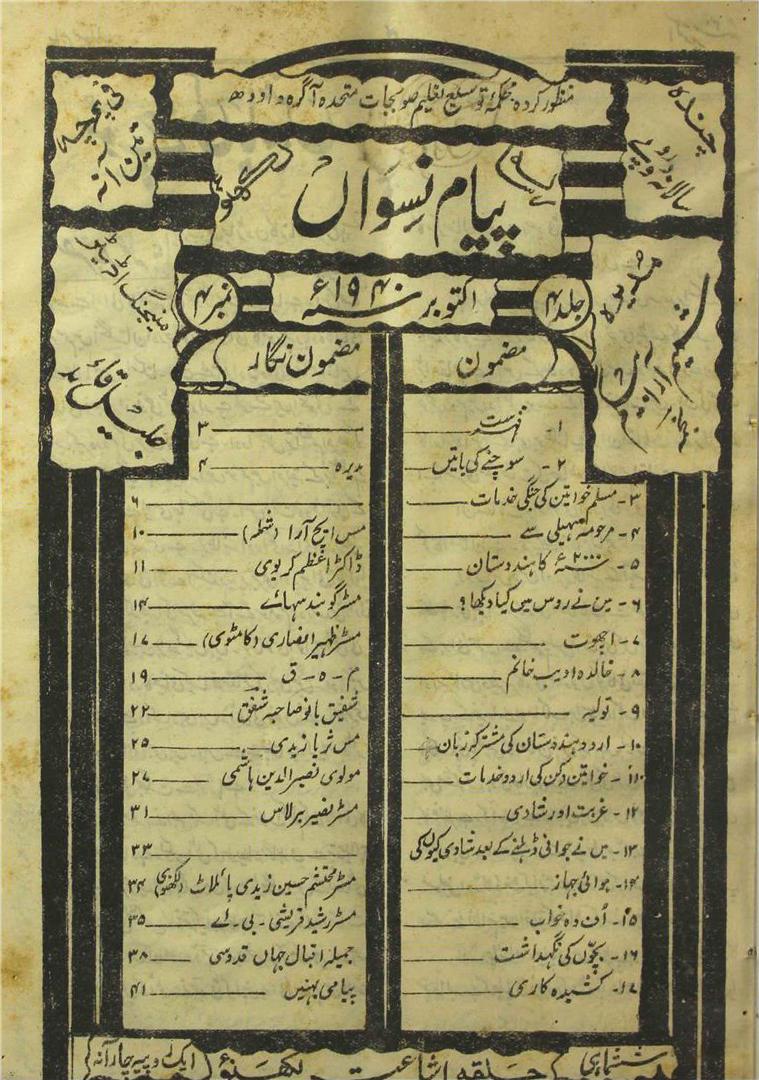 منظور کردہ محکمۂ توسیع تعلیم صوبجات متحدہ آگرہ و اودھ
چندہ
سالانہ دو روپے
فی پرچہ
تین آنہ
پیام نسواں
لکھنؤ
جلد ۴
اکتوبر سنہ ۱۹۴۰ء
نمبر ۴
مدیرہ
منیجنگ اڈیٹر
مضمون
مضمون نگار
۱- فہرست ۳
۲- سوچنے کی باتیں مدیرہ ۴
۳- مسلم خواتین کی جنگی خدمات ۶
۴- مرحومہ سہیلی سے مس ایچ آرا (شملہ) ۱۰
۵- سنہ ۲۰۰۰ء کا ہندوستان ڈاکٹر اعظم کریوی ۱۱
۶- میں نے روس میں کیا دیکھا؟ مسٹر گوبند سہائے ۱۴
۷- اچھوت مسٹر ظہیر انصاری (کامٹوی) ۱۷
۸- خالدہ ادیب خانم م - ہ - ق ۱۹
۹- تولیہ شفیق بانو صاحبہ شفق ۲۲
۱۰- اردو ہندوستان کی مشترکہ زبان مس ثریا زیدی ۲۵
۱۱- خواتین دکن کی اردو خدمات مولوی نصیر الدین ہاشمی ۲۷
۱۲- غربت اور شادی مسٹر نصیر برلاس ۳۱
۱۳- میں نے جوانی ڈھلنے کے بعد شادی کیوں کی ۳۳
۱۴- ہوائی جہاز مسٹر محتشم حسین زیدی پائلاٹ (لکھنوی) ۳۴
۱۵- اُف وہ خواب مسٹر رشید قریشی - بی - اے ۳۵
۱۶- بچّوں کی نگہداشت جمیلہ اقبال جہاں قدوسی ۳۸
۱۷- کشیدہ کاری پیامی بہنیں ۴۱
ششماہی
حلقہ اشاعت لکھنؤ
ایک روپیہ چار آنہ